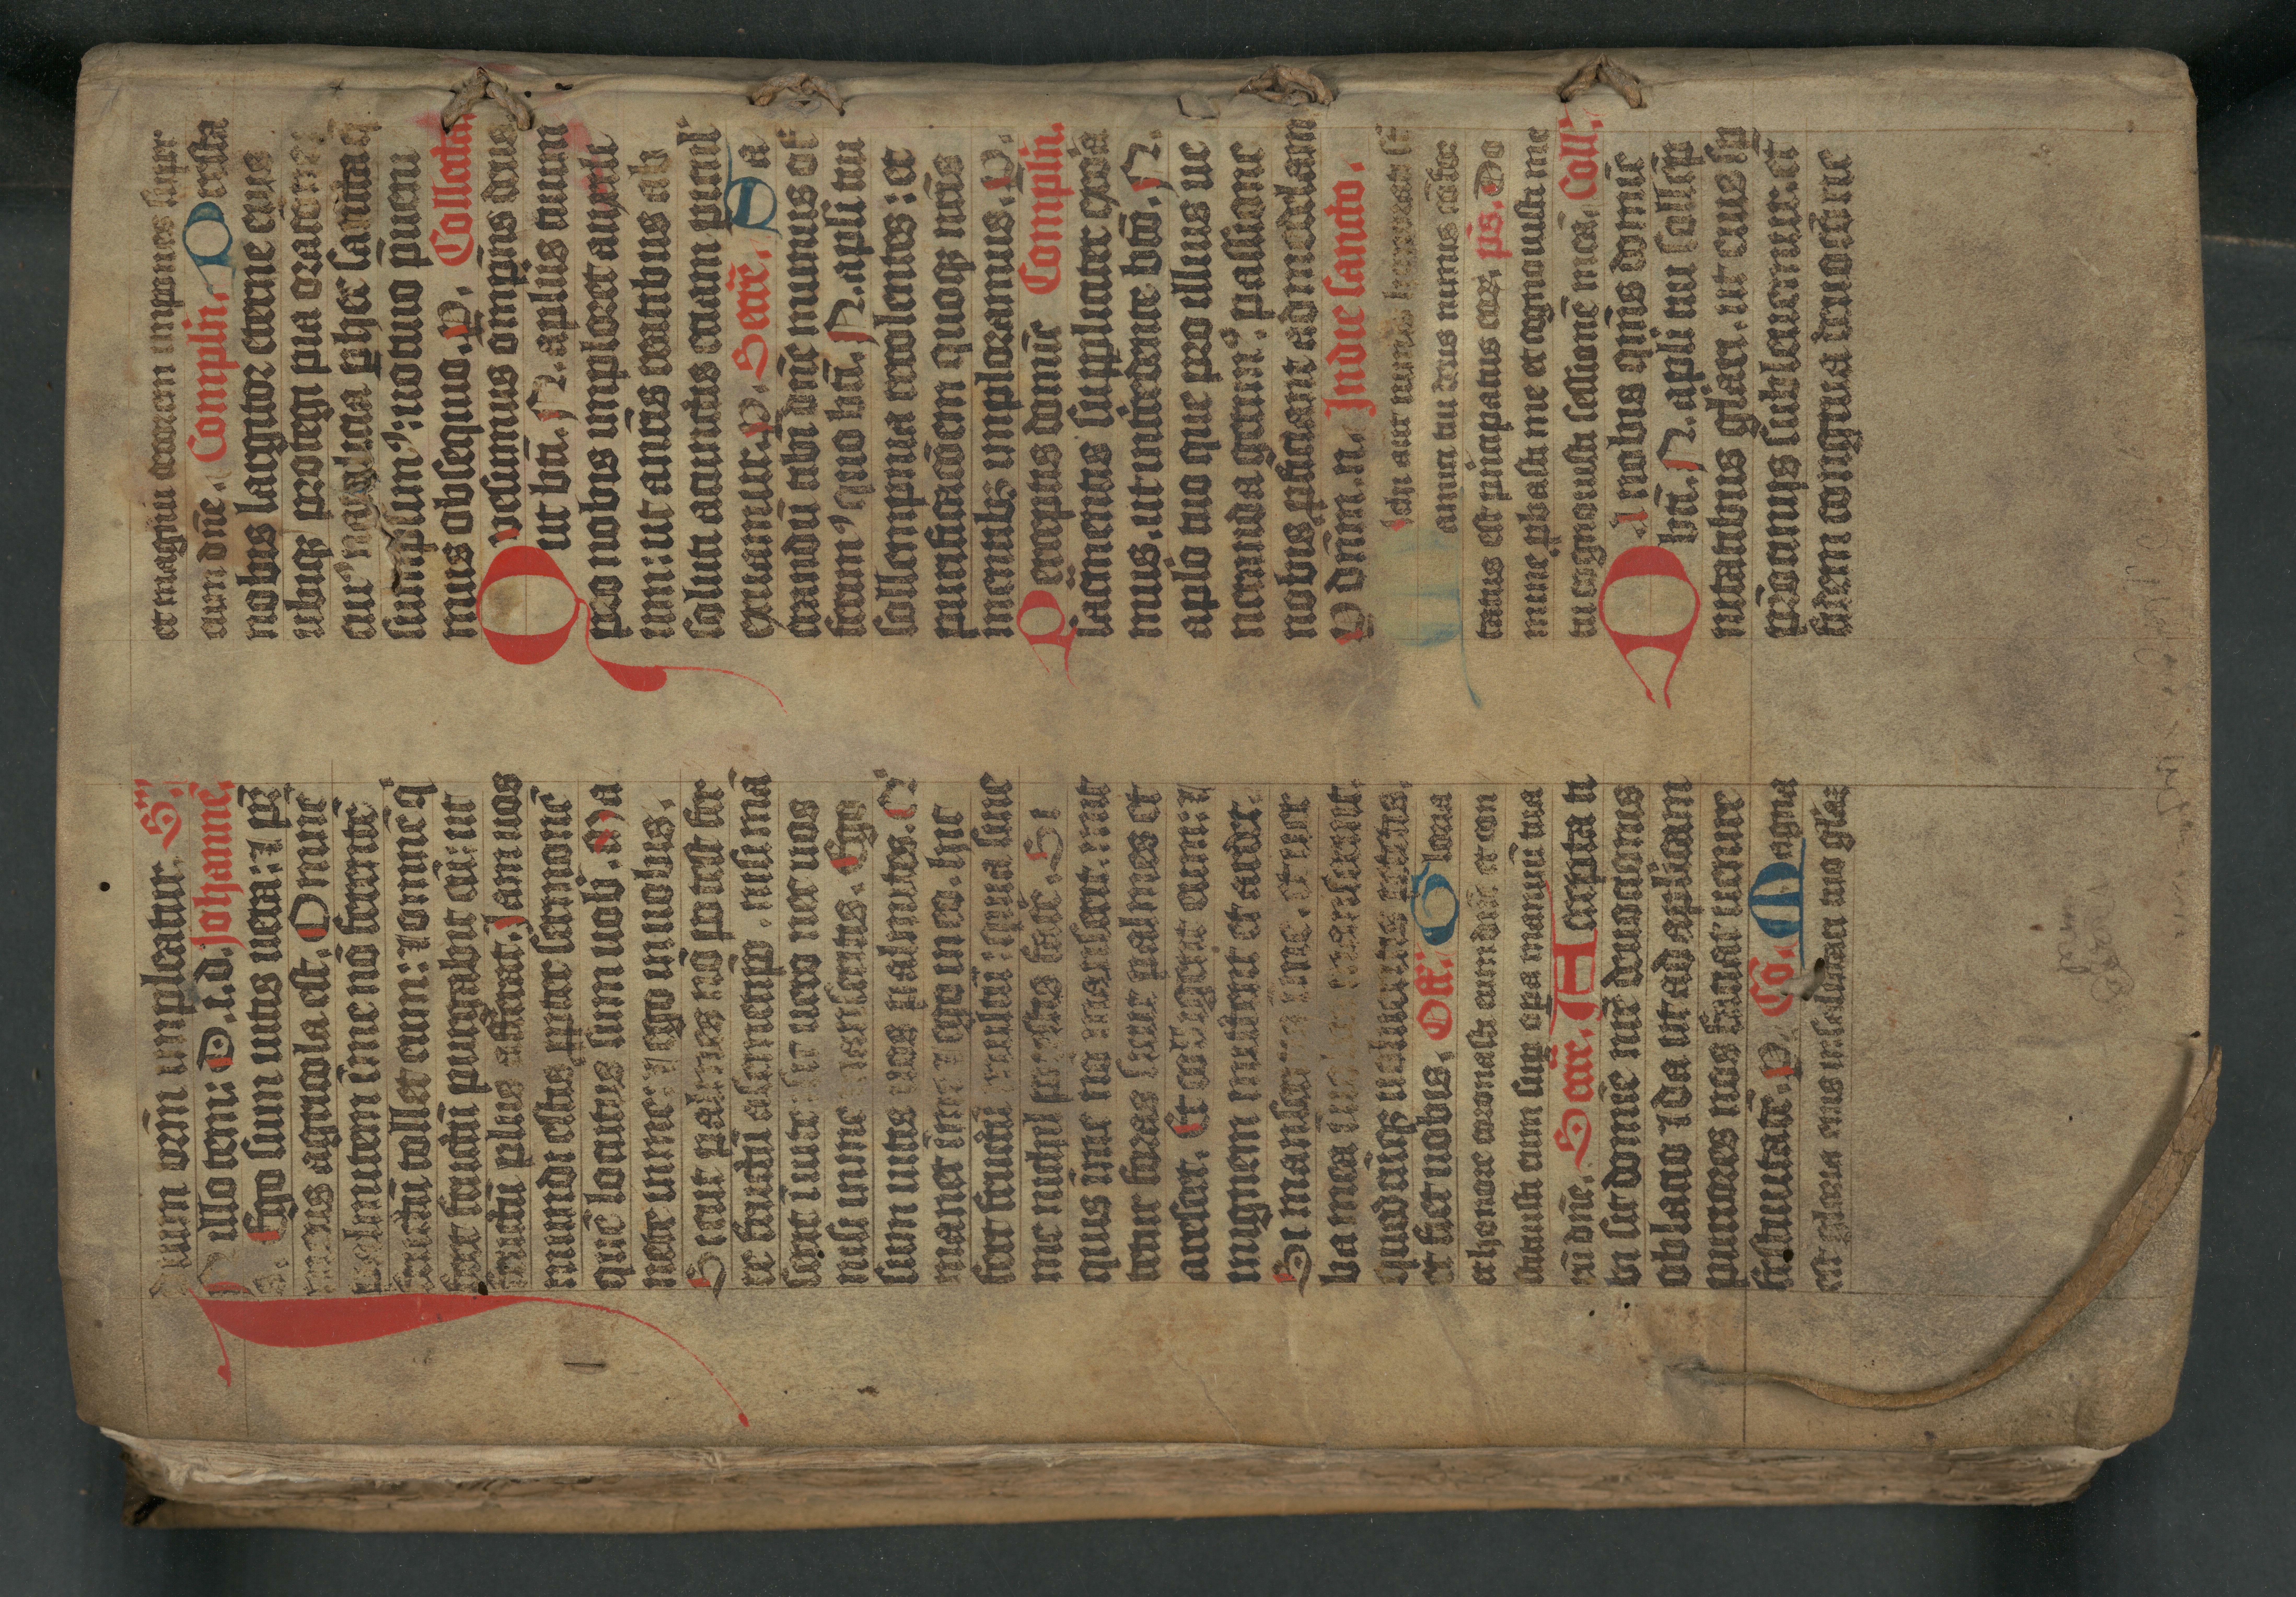 dium vr̄m impleatur. S:
In illo tem: D. i. d. Johanne.
Ego sum uitis uera: ⁊ pr̄
meus agricola est. Omnē
palmitem ī me nō ferente
fructū tollet eum: ⁊ omnē q
fert fructū purgabit eū: ut
fructū plus afferat. Jam uos
mundi estis ppter sermonē
quē locutus sum uob. Ma
nete in me: ⁊ ego in uobis.
Sicut palmes nō potest fer
re fructū a semetip. nisi mā
serit ī uite: sic uero nec uos
nisi in me manseritis. Ego
sum uitis uos palmites. Q'
manet ī me ⁊ ego in eo. hic
fert fructū multū: quia sine
me nichil potestis face. Si
quis ī me nō manserit: mit
tetur foras sicut palmes et
arescet. Et colligent eum: ⁊
in ignem mittent et ardet.
Si manseritis in me. et uer
ba mea in uobis manserint.
quodcūqȝ uolueritis petetis.
et fiet uobis. Off. Gloria
et honore coronasti eum dn̄e et con
stituisti eum sup opa manuū tua
rū dn̄e. Secr̄. Accepta ti
bi sit domine nr̄e deuotionis
oblatio ⁊ da ut ad aplicam
puriores nos faciat uenire
festiuitatē. P. Co. Magna
est gloria eius in salutari tuo glaȝ
et magnū decorem impones super
eum dn̄e. Complēn. Presta
nobis largitor eterne eius
ubiqȝ protegi pia oratione
cui' natalicia p hec sancta q
sumpsim': uotiuo pueni
mus obsequio. P. Collecta.
Quesumus omps deus
ut bt̄i. N. aplus tuum
pro nobis imploret auxili
um: ut a nr̄is reatibus ab
soluti a cunctis etiam picul'
exuamur. P. Secr̄. Sa
crandū tibi dn̄e munus of
ferim' quo bt̄i. N. apli tui
sollempnia recolentes: et
purificatōem quoqȝ nr̄is
mentibȝ imploramus. P.
Perceptis domīe Complēn.
sacmentis suppliciter exora
mus. ut intercedente bt̄o. N.
aplo tuo que pro illius ue
neranda gerim': passione
nobis pficiant ad medelam
P dn̄m. n. In die sancto.
amici tui deus nimis cōfor
tatus est pincipatus eoȝ. ps. Do
mine pbasti me et cognouisti me
tu cognouisti sessionē meā. Coll.
Da nobis qm̄s domīe
bt̄i. N. apli tui sollēp
nitatibus gl̄iari. ut eius sp
p̄cionijs subleuemur: et
fidem congrua deuotōe ue